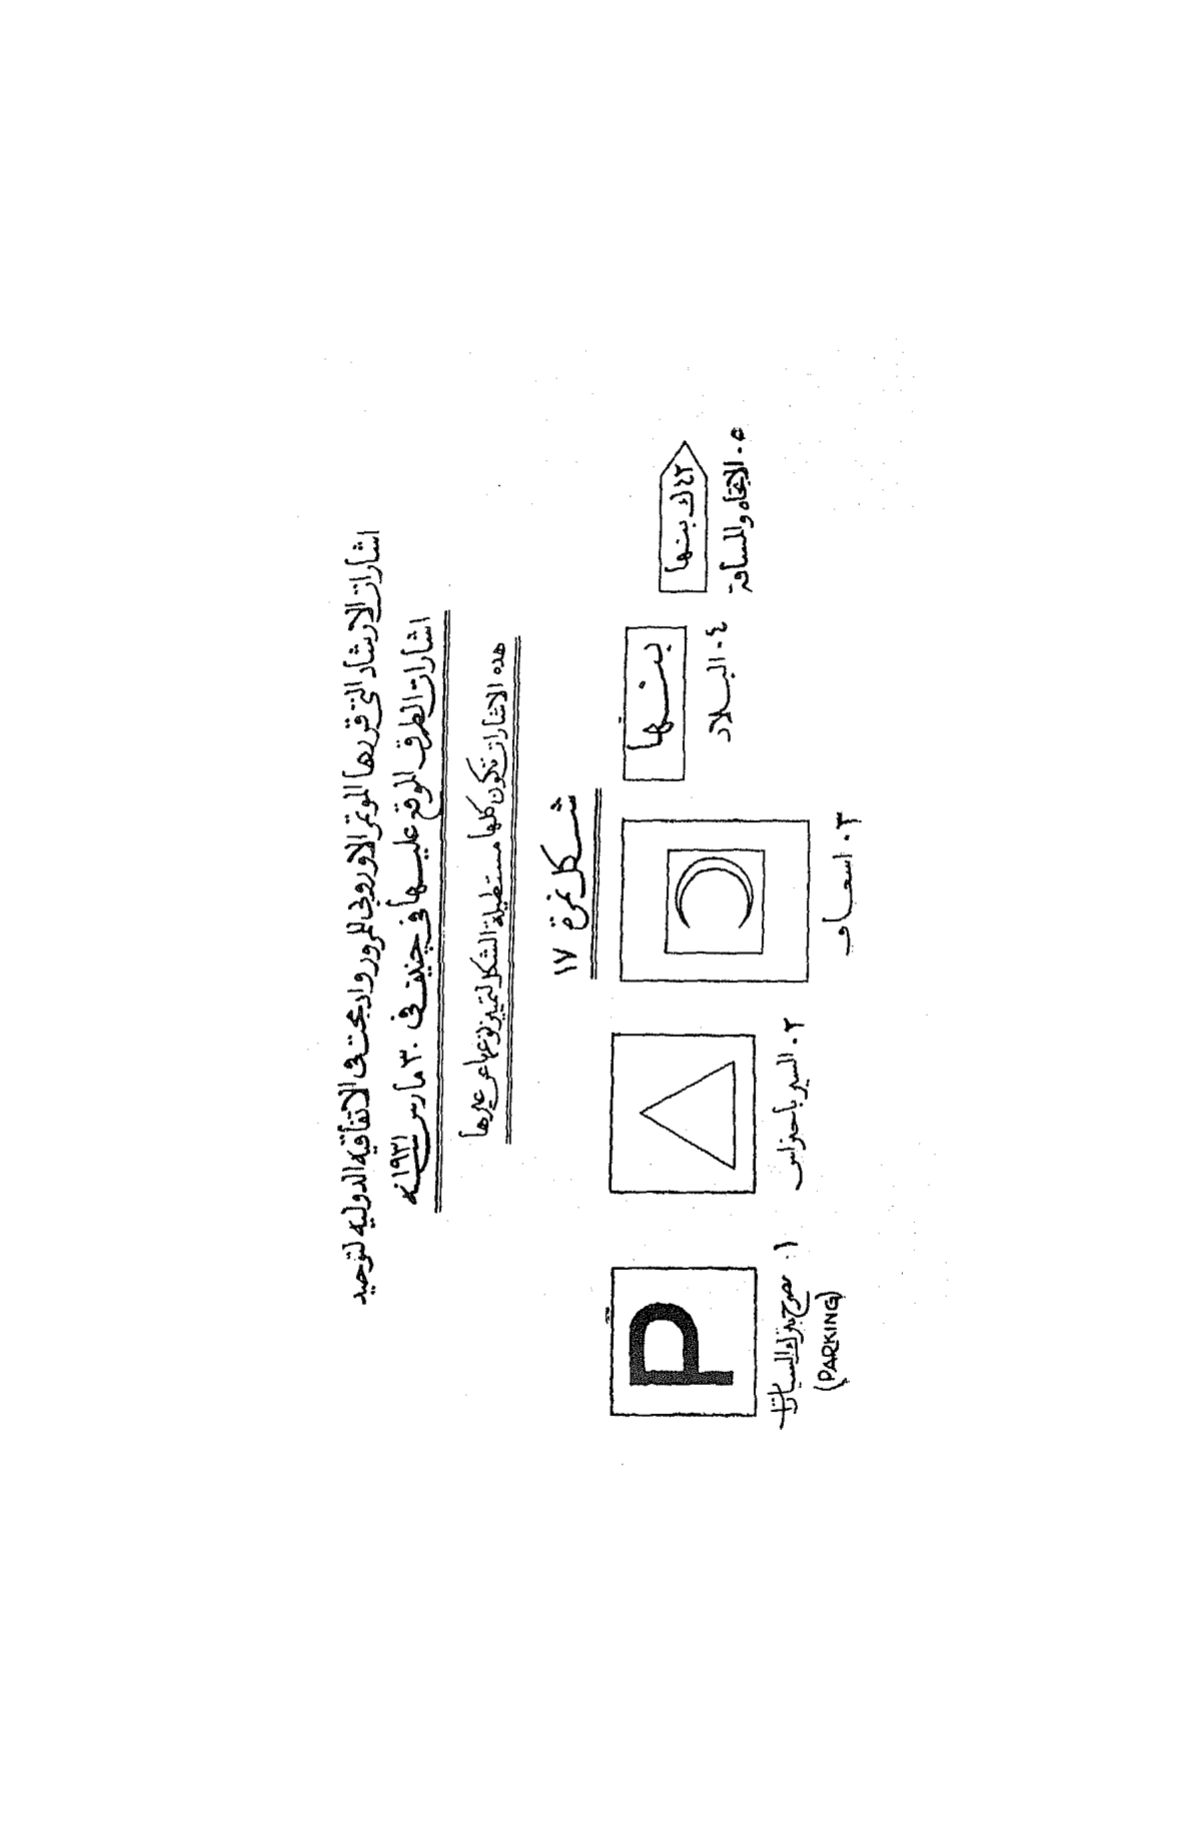 اشارات الارشاد التى قررها المؤتمر الاوروبى للمرور وادمجت فى الاتفاقيه الدوليه لتوحيد
اشارات الطرق الموقع عليها فى جنيف فى ٣٠ مارس سنة ١٩٣١
هذه الاشارات تكون كلها مستطيلة الشكل لتمييز نوعها عن غيرها
شكل نمرة ١٧
P
١. مصرح بترك السيارات
(PARKING)
٢. السير باحتراس
٣. اسعاف
بنها
٤. البلاد
٤٣ ك بنها
٥. الاتجاه والمسافة